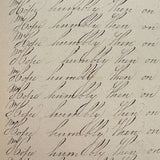 Hope humbly then on
My
Hope humbly then on
My
Hope humbly then on
My
Hope humbly then on
My
Hope humbly then on
My
Hope humbly then on
My
Hope humbly then on
My
Hope humbly then on